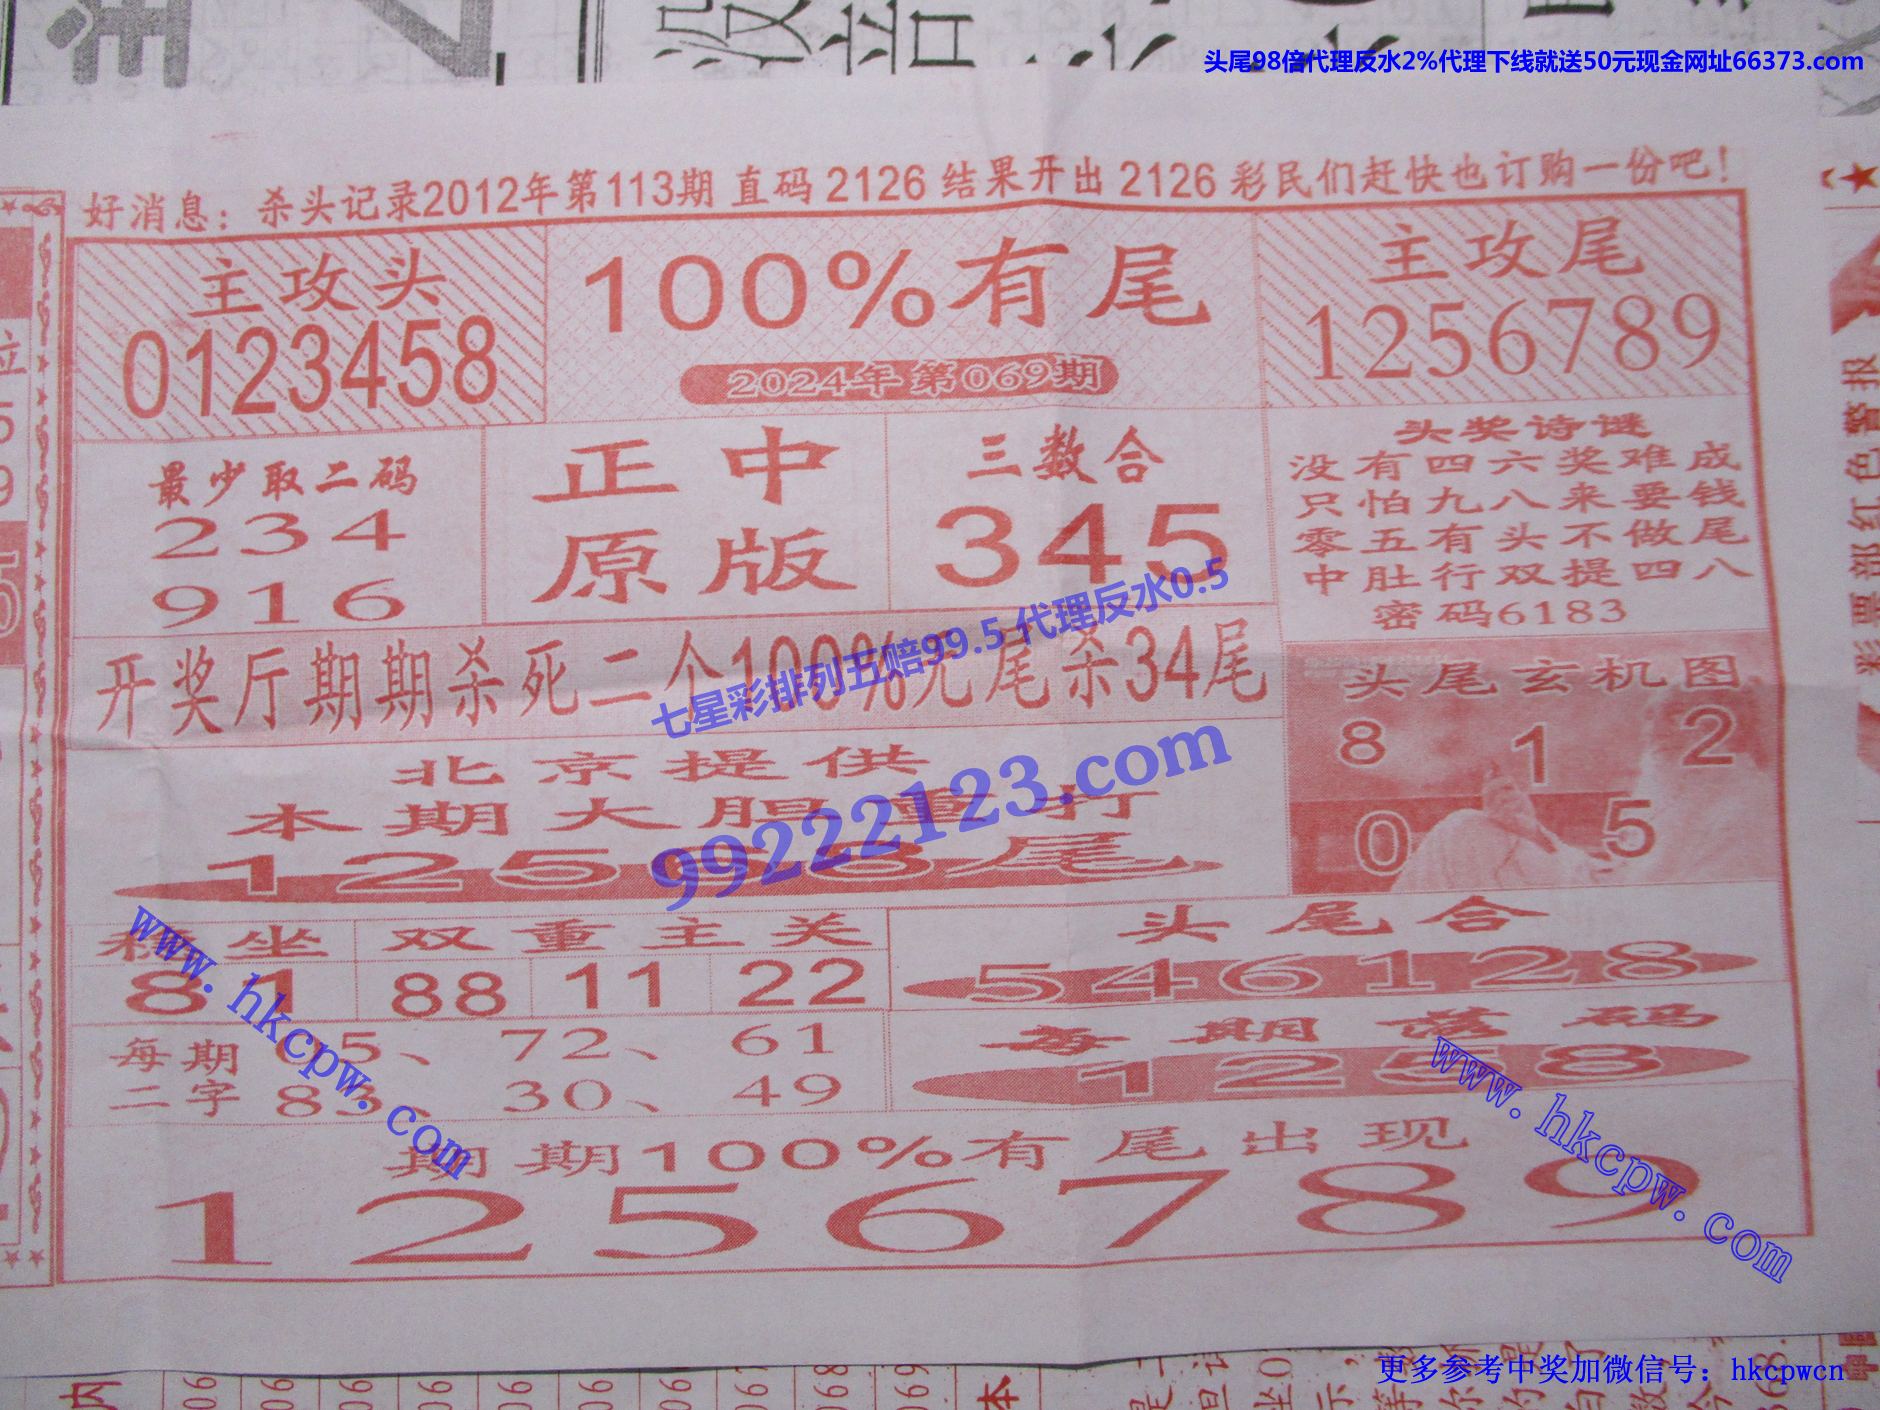 头尾98倍代理反水2%代理下线就送50元现金网址66373.com
好消息：杀头记录2012年第113期 直码 2126 结果开出 2126 彩民们赶快也订购一份吧！
主攻头
0123458
100%有尾
2024年 第069期
主攻尾
1256789
最少取二码
234
916
正中
原版
三数合
345
头奖诗谜
没有四六奖难成
只怕九八来要钱
零五有头不做尾
中肚行双提四八
密码6183
开奖厅期期杀死二个100%无尾杀34尾
七星彩排列五赔99.5 代理反水0.5
99222123.com
头尾玄机图
8 1 2
0 5
北京提供
本期大胆重打
尾
坐
81
双重主关
88 11 22
头尾合
546128
www.hkcpw.com
每期
二字
5、 72、 61
83、 30、 49
每期落码
1258
www.hkcpw.com
期期100%有尾出现
1256789
彩票部红色警报
更多参考中奖加微信号：hkcpwcn